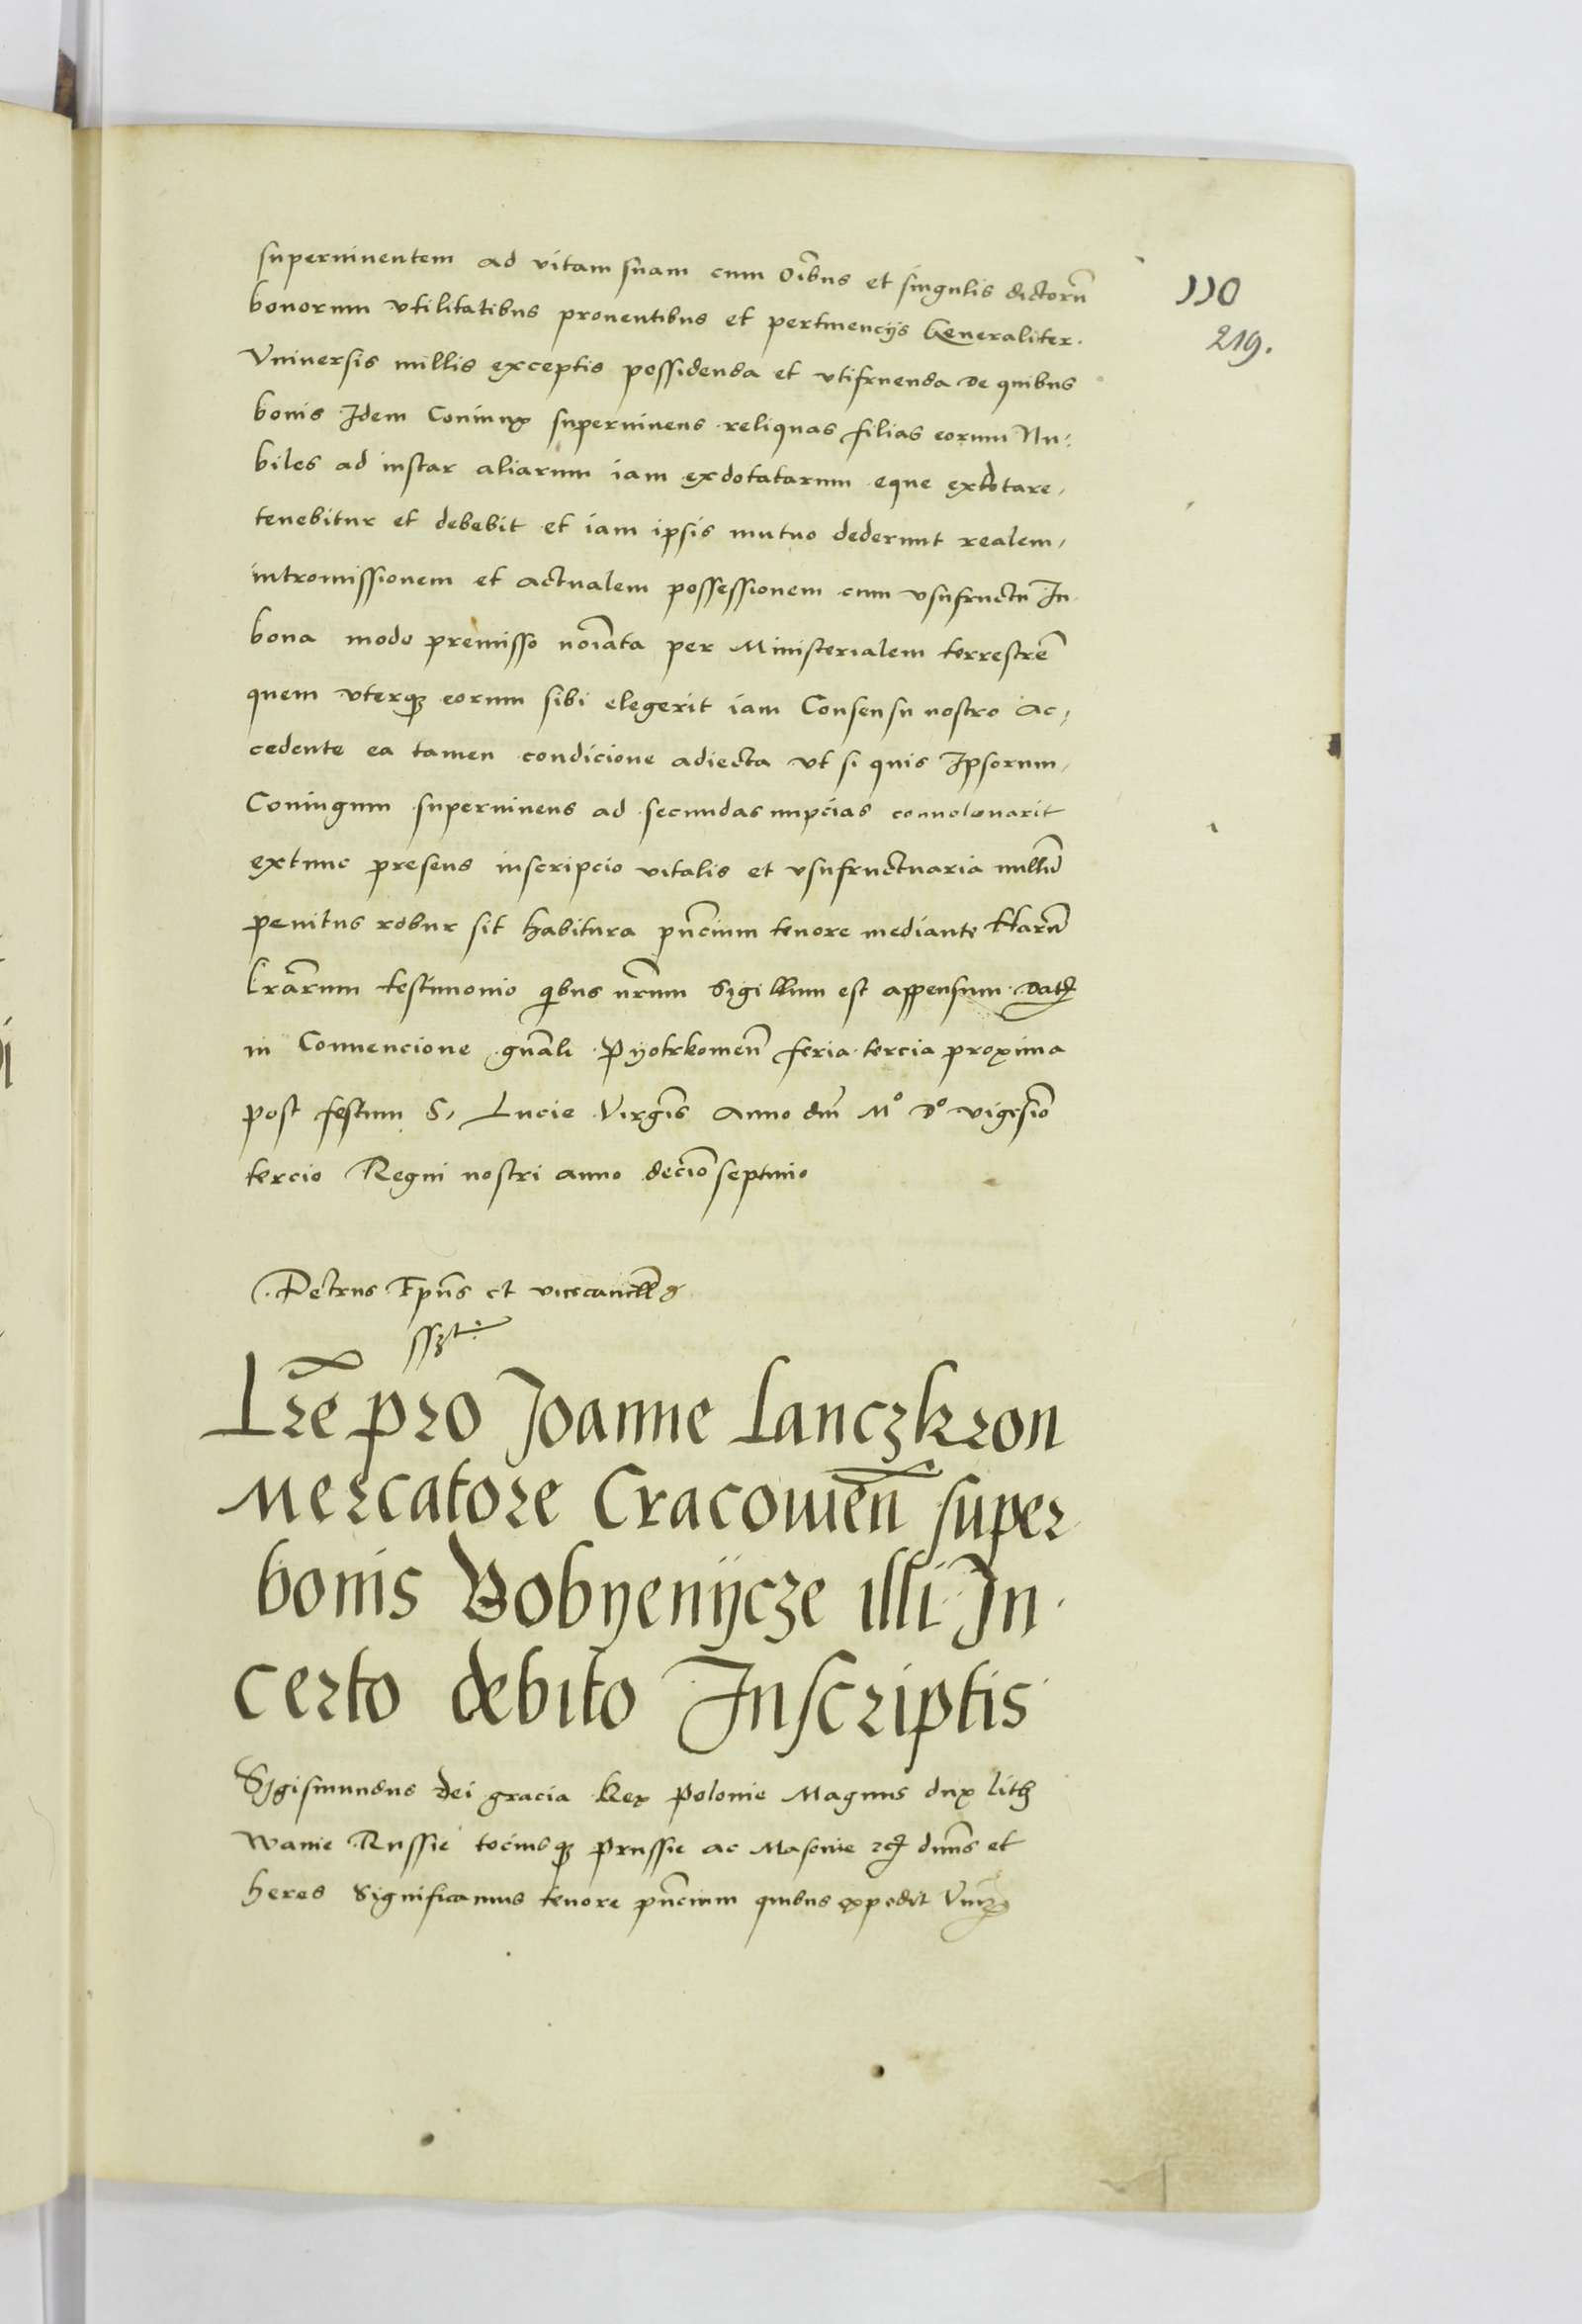 superuiuentem ad vitam suam cum oi͞bus et singulis dictoru͞
110
bonorum vtilitatibus prouentibus et pertinencijs Generaliter.
219.
Vniuersis nullis exceptis possidenda et vtifruenda de quibus
bonis Idem Coniunx superuiuens reliquas filias eorum Nu:
biles ad instar aliarum iam exdotatarum eque exdotare,
tenebitur et debebit et iam ipsis mutuo dederunt realem,
intromissionem et actualem possessionem cum vsufructu In
bona modo premisso no͞iata per Ministerialem terrestre͞
quem vterqꝫ eorum sibi elegerit iam Consensu nostro Ac,
cedente ea tamen condicione adiecta vt si quis Ipsorum,
Coniugum superuiuens ad secundas nupcias conuolouarit
extunc presens inscripcio vitalis et vsufructuaria nullu͞
penitus robur sit habitura pn͞cium tenore mediante Haru͞
lra͞rum testimonio qi͞bus nr͞um Sigillum est appensum. Dat͞
in Conuencione gn͞ali Pyotrkouien͞ feria tercia proxima
post festum S, Lucie Virgi͞s Anno dni͞ Mᵒ dᵒ vigesi͞o
tercio Regni nostri anno deci͞oseptimo
Petrus Epu͞s et vicecancell͞
sszt
Lr͞e pro Joanne Lanczkron
Mercatore Cracouien͞ super
bonis Bobyenijcze illi In
certo debito Inscriptis
Sigismundus Dei gracia Rex Polonie Magnus dux lith
wanie Russie tociusqꝫ Prussie ac Masouie zc͞ dnu͞s et
heres Significamus tenore pn͞cium quibus expedit